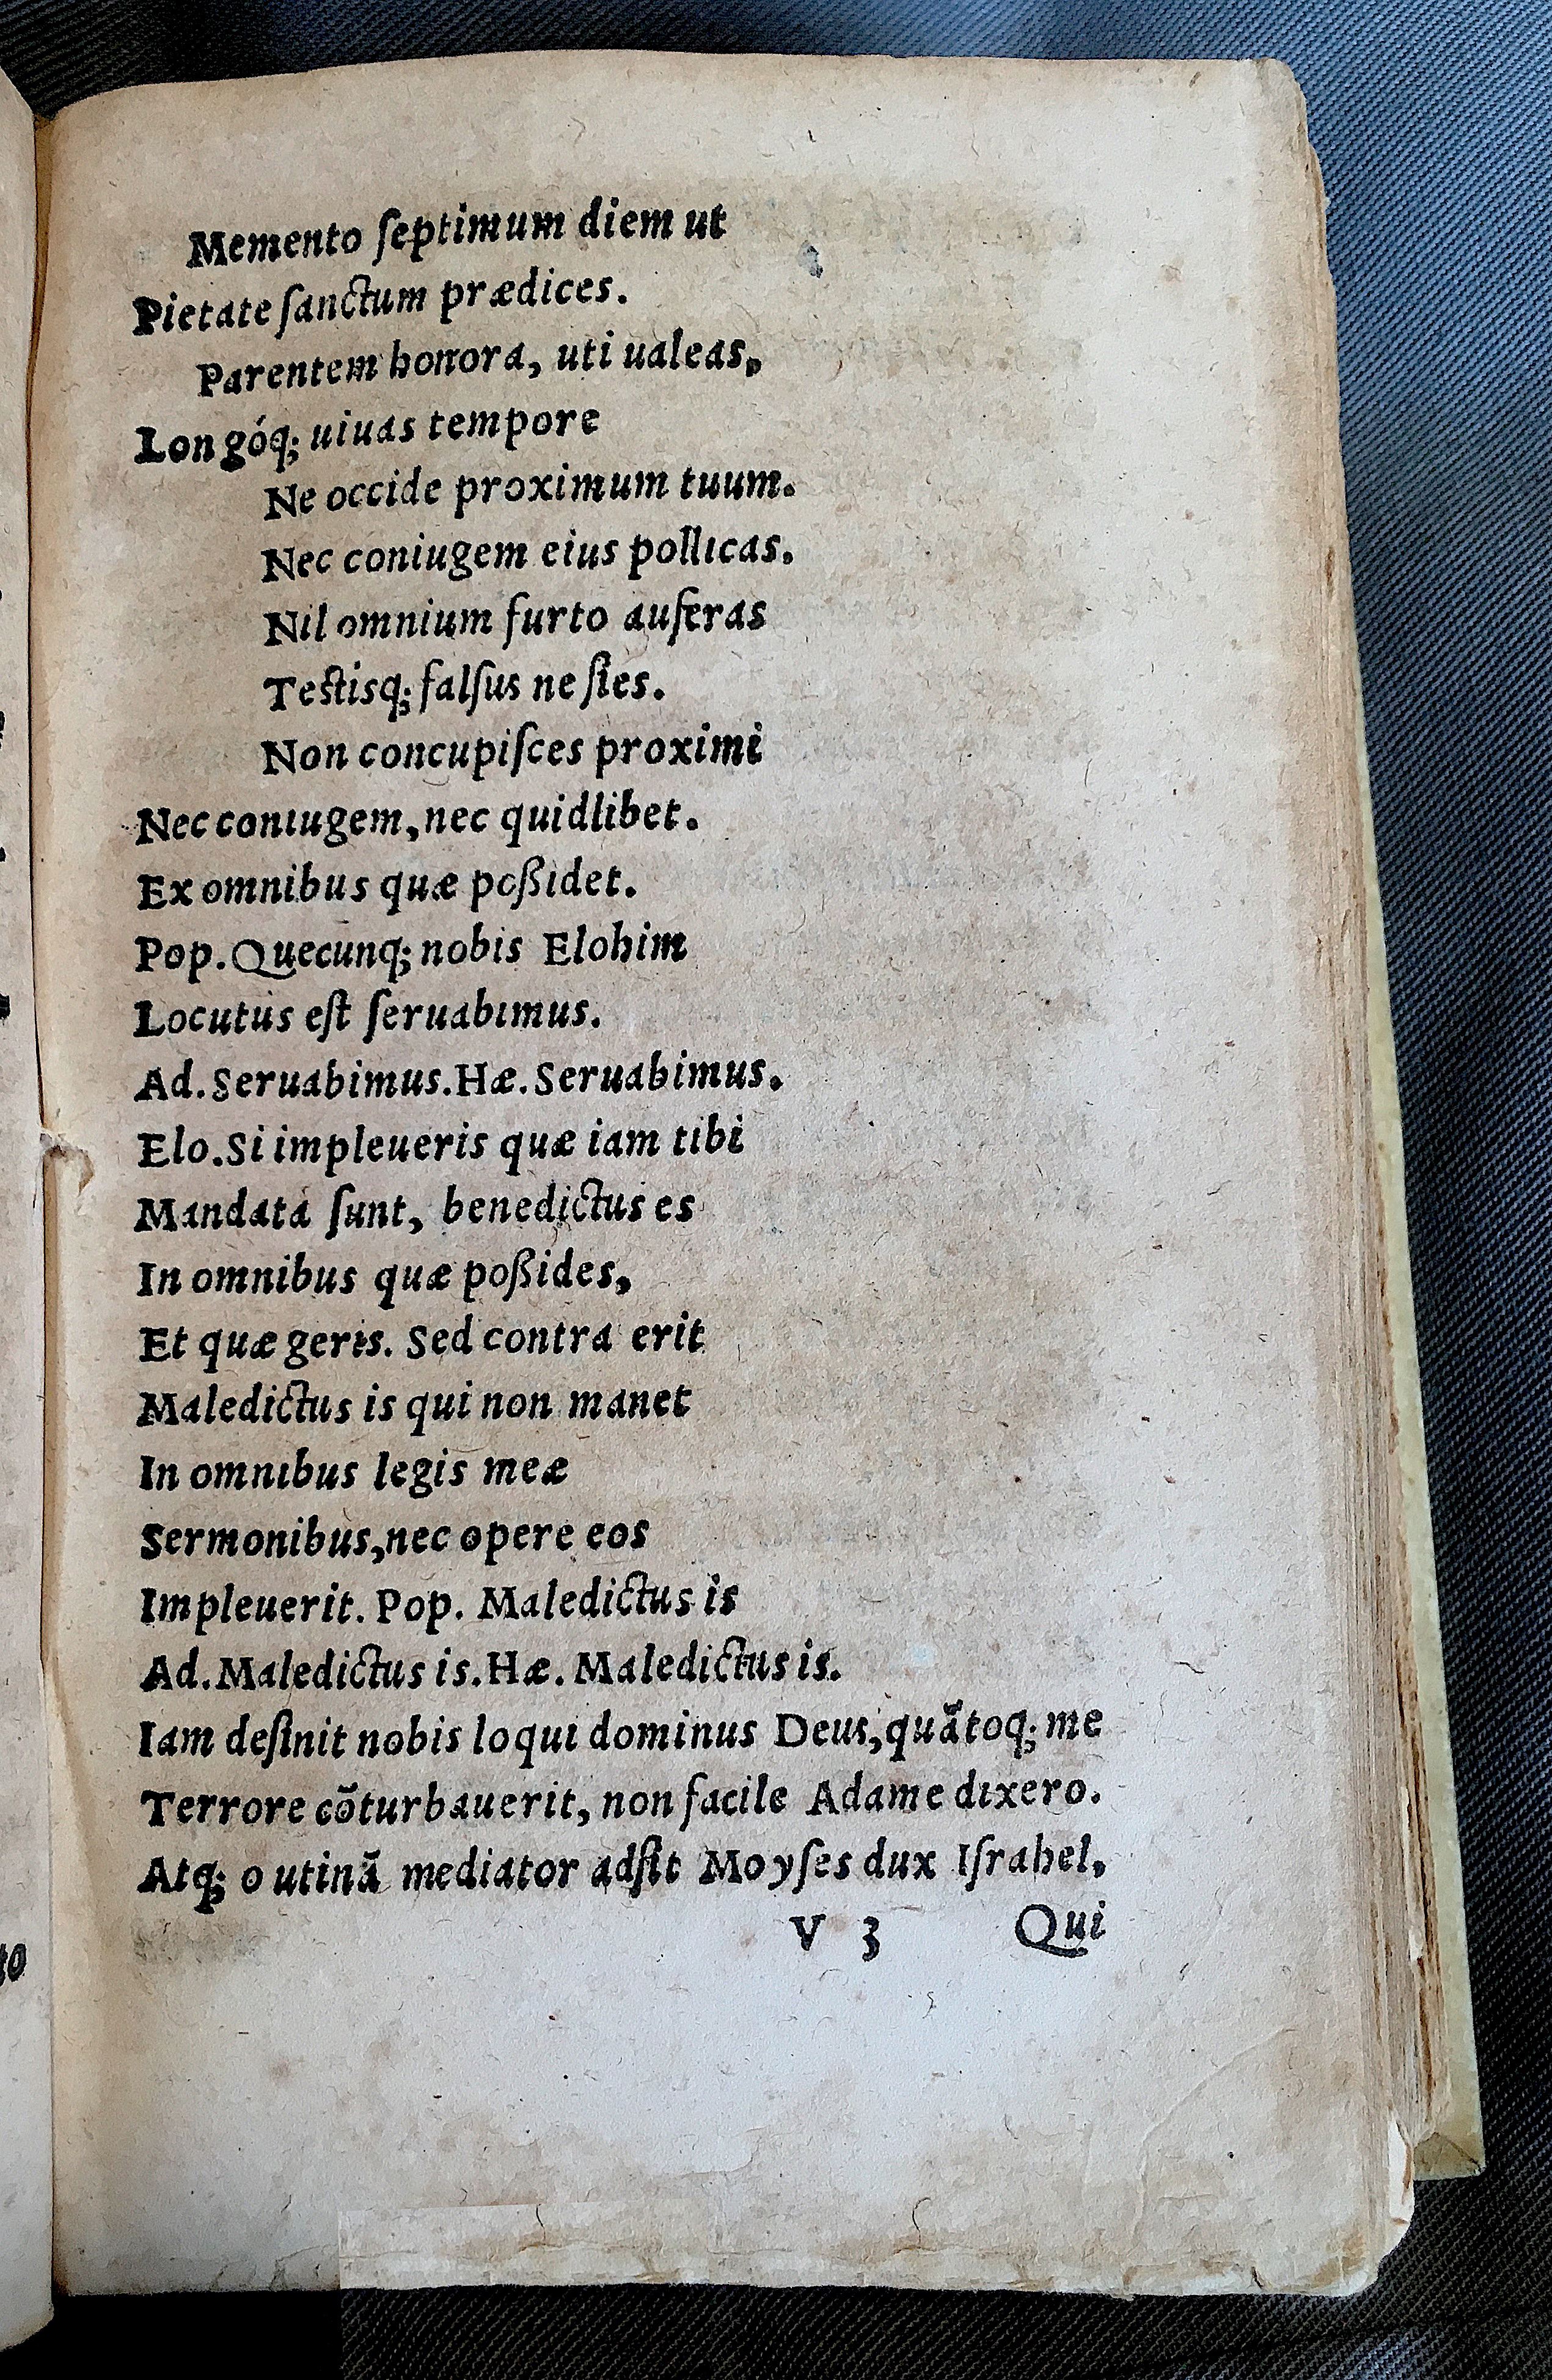 Memento ſeptimum diem ut
Pietate ſanctum prædices.
Parentem honora, uti ualeas,
Longóq; uiuas tempore
Ne occide proximum tuum.
Nec coniugem eius pollicas.
Nil omnium furto auferas
Testisq; falſus ne ſies.
Non concupiſces proximi
Nec coniugem, nec quidlibet.
Ex omnibus quæ poßidet.
Pop. Quecunq; nobis Elohim
Locutus eſt ſeruabimus.
Ad. Seruabimus. Hæ. Seruabimus.
Elo. Si impleueris quæ iam tibi
Mandata ſunt, benedictus es
In omnibus quæ poßides,
Et quæ geris. Sed contra erit
Maledictus is qui non manet
In omnibus legis meæ
Sermonibus, nec opere eos
Impleuerit. Pop. Maledictus is
Ad. Maledictus is. Hæ. Maledictus is.
Iam deſinit nobis loqui dominus Deus, quãtoq; me
Terrore cõturbauerit, non facile Adame dixero.
Atq; o utinã mediator adſit Moyſes dux Iſrahel,
V 3 Qui